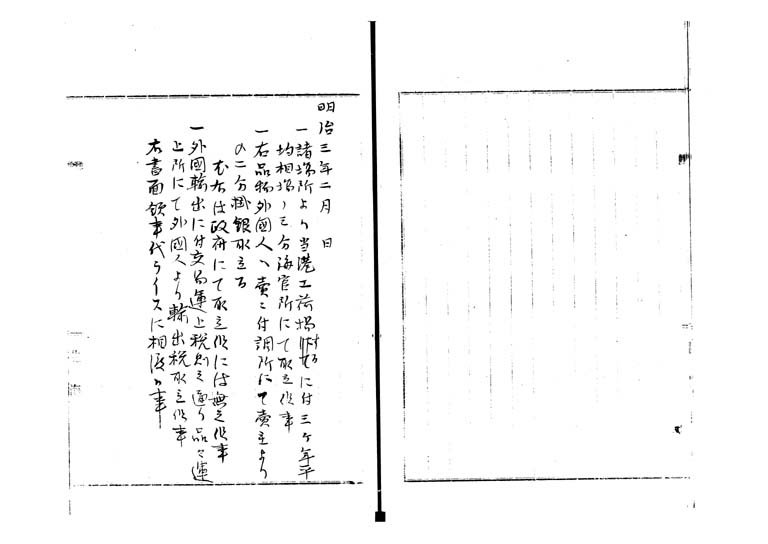 明治三年二月 日
一諸場所より当港エ荷揚に付三ケ年平
均相場ノ三分海官所にて取立候事
一右品物外国人ヘ売ニ付調所にて売主より
の二分掛銀取立る
尤右は政府にて取立候には無之候事
一外国輸出に付交易運上税則之通り品々運
上所にて外国人より輸出税取立候事
右書面領事代ライスに相渡ス事